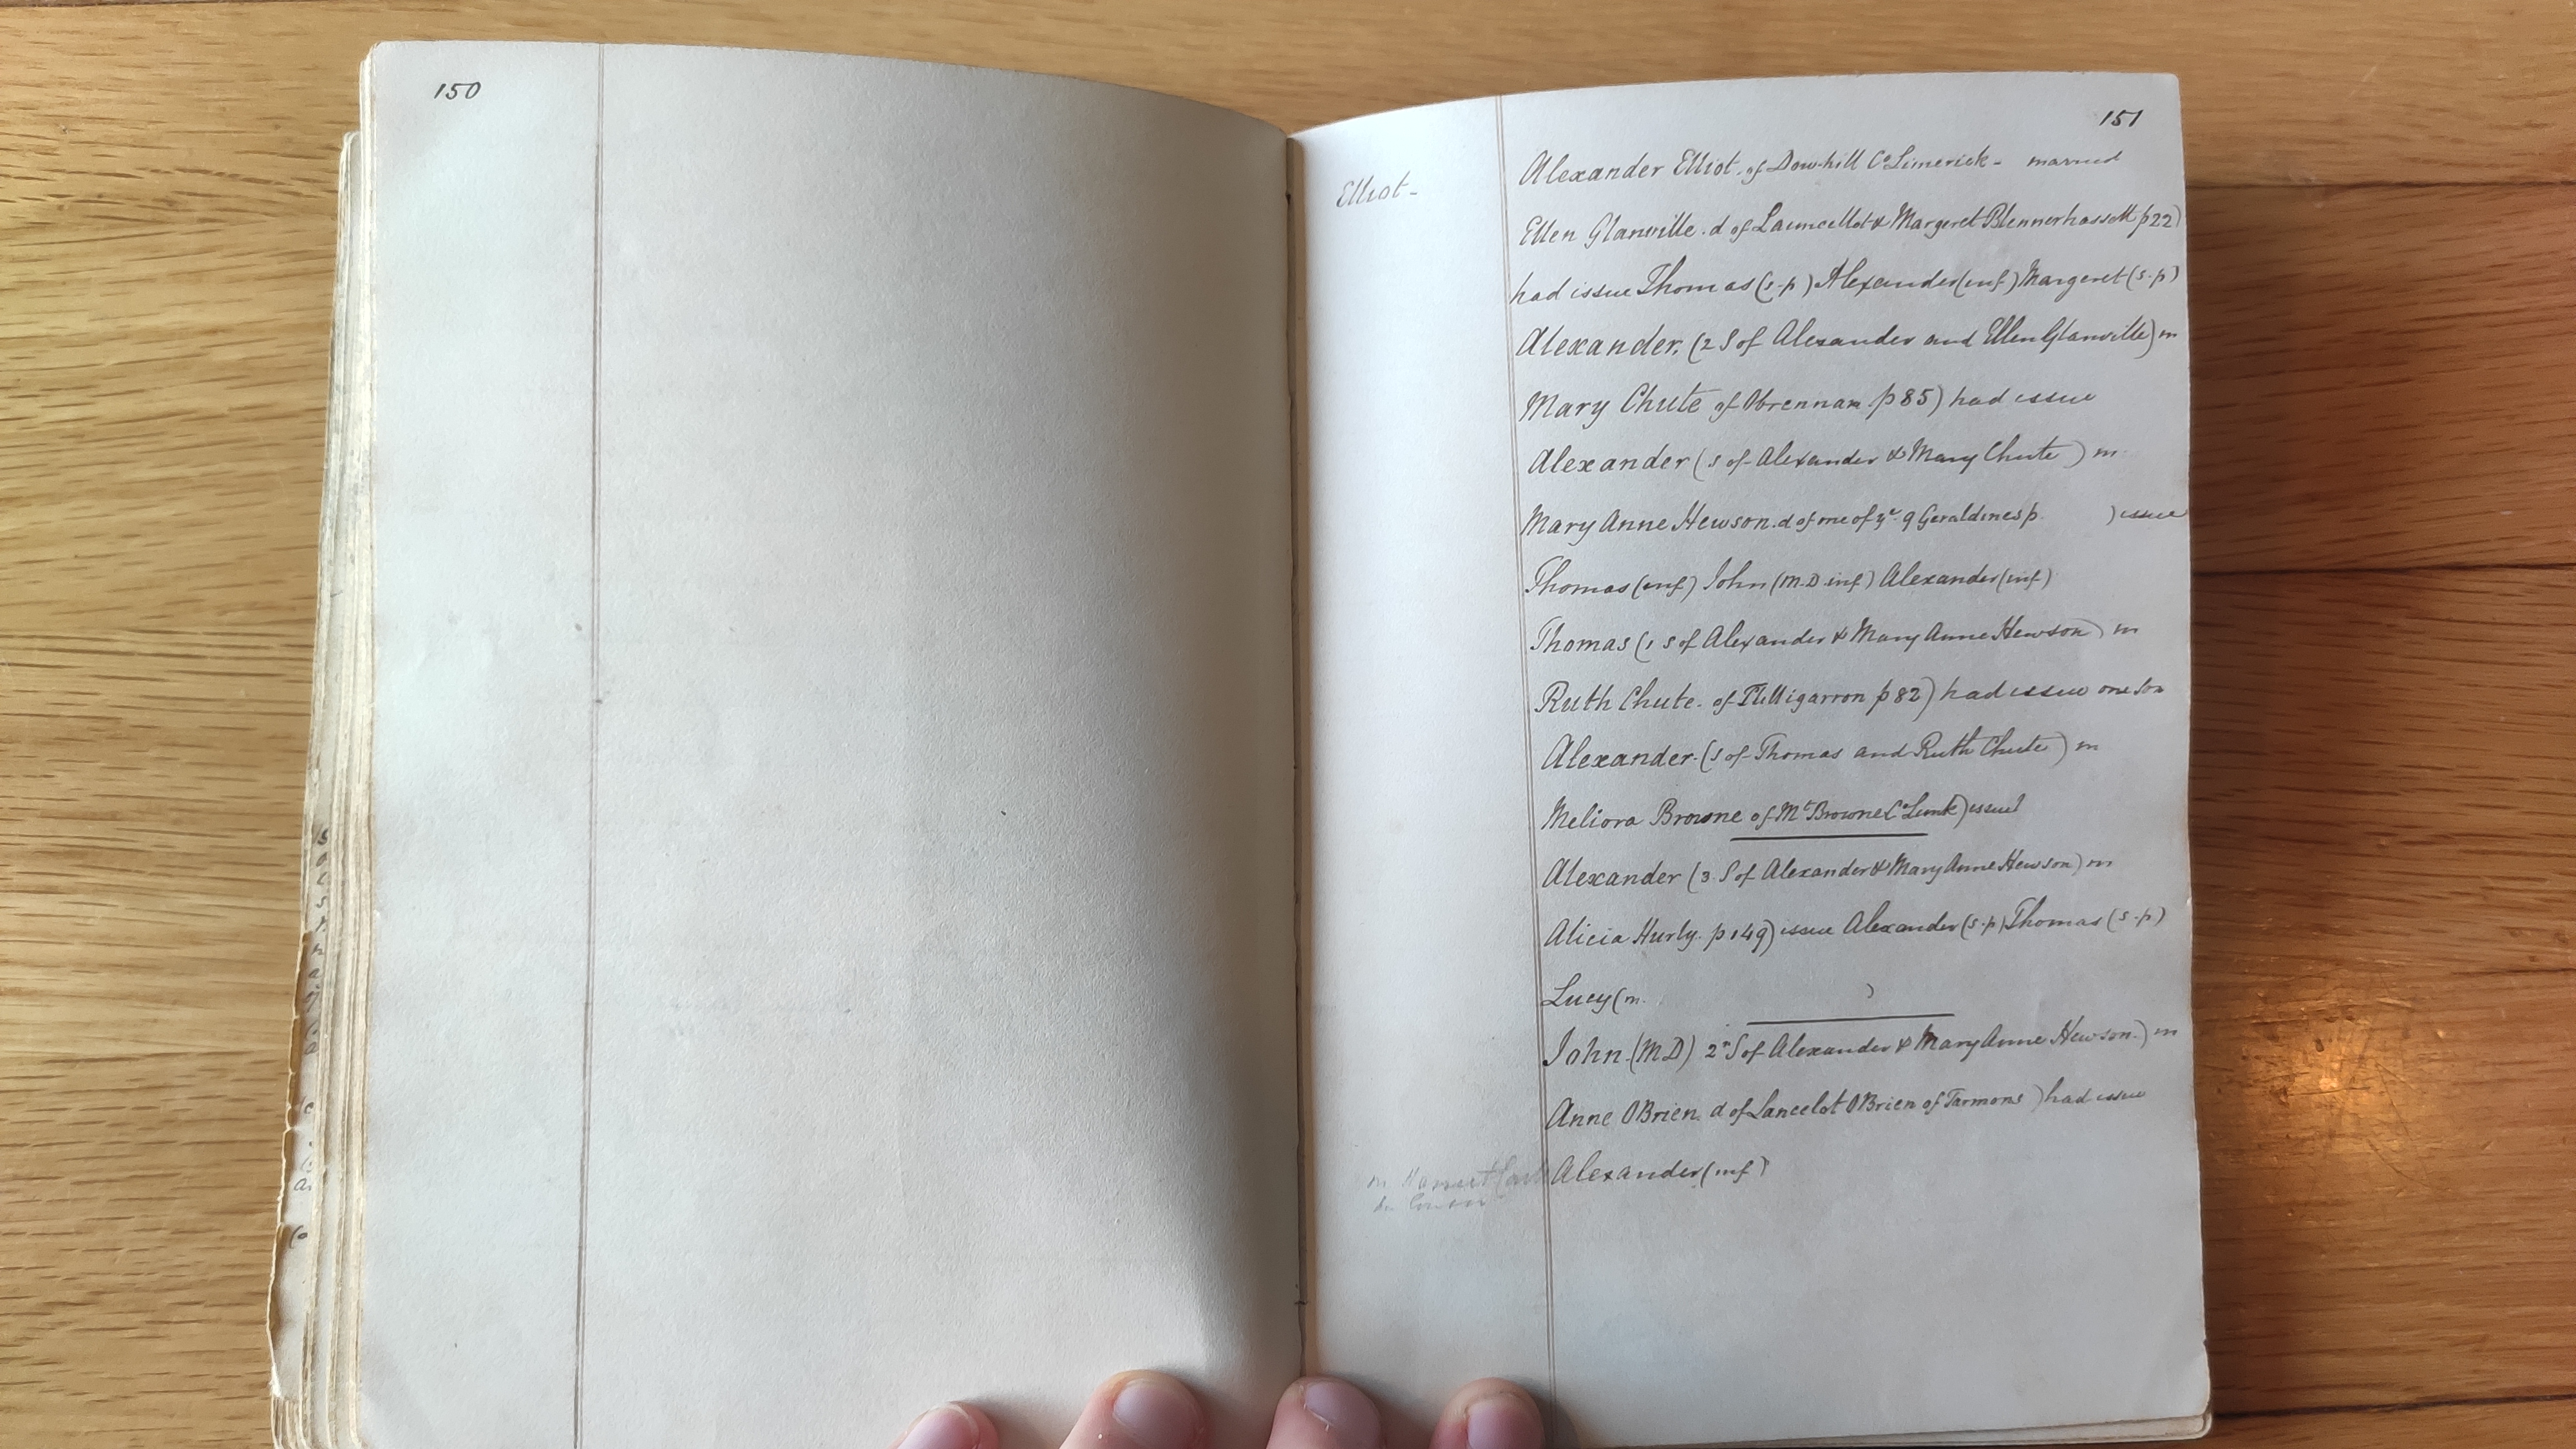 150
151
Elliot-
Alexander Elliot. of Dowhill Co Limerick - married
Ellen Glanville. d of Launcellot & Margeret Blennerhassett p22)
had issue Thomas (s.p) Alexander (inf) Margeret (s.p)
Alexander. (2 S of Alexander and Ellen Glanville) m
Mary Chute of Obrennan p 85) had issue
Alexander (s of Alexander & Mary Chute) m
Mary Anne Hewson. d of one of ye 9 Geraldines p. ) issue
Thomas (inf) John (M.D inf) Alexander (inf)
Thomas (1 S of Alexander & Mary Anne Hewson) m
Ruth Chute. of Tulligarron p 82) had issue one son
Alexander. (S of Thomas and Ruth Chute) m
Meliora Browne of Mt Browne Co Limk) issue
Alexander (3. S of Alexander & Mary Anne Hewson) m
Alicia Hurly. p 149) issue Alexander (s.p) Thomas (s.p)
Lucy (m. )
John. (MD) 2 S of Alexander & Mary Anne Hewson.) m
Anne OBrien d of Lancelot OBrien of Tarmons) had issue
Alexander (inf)
m Harriet